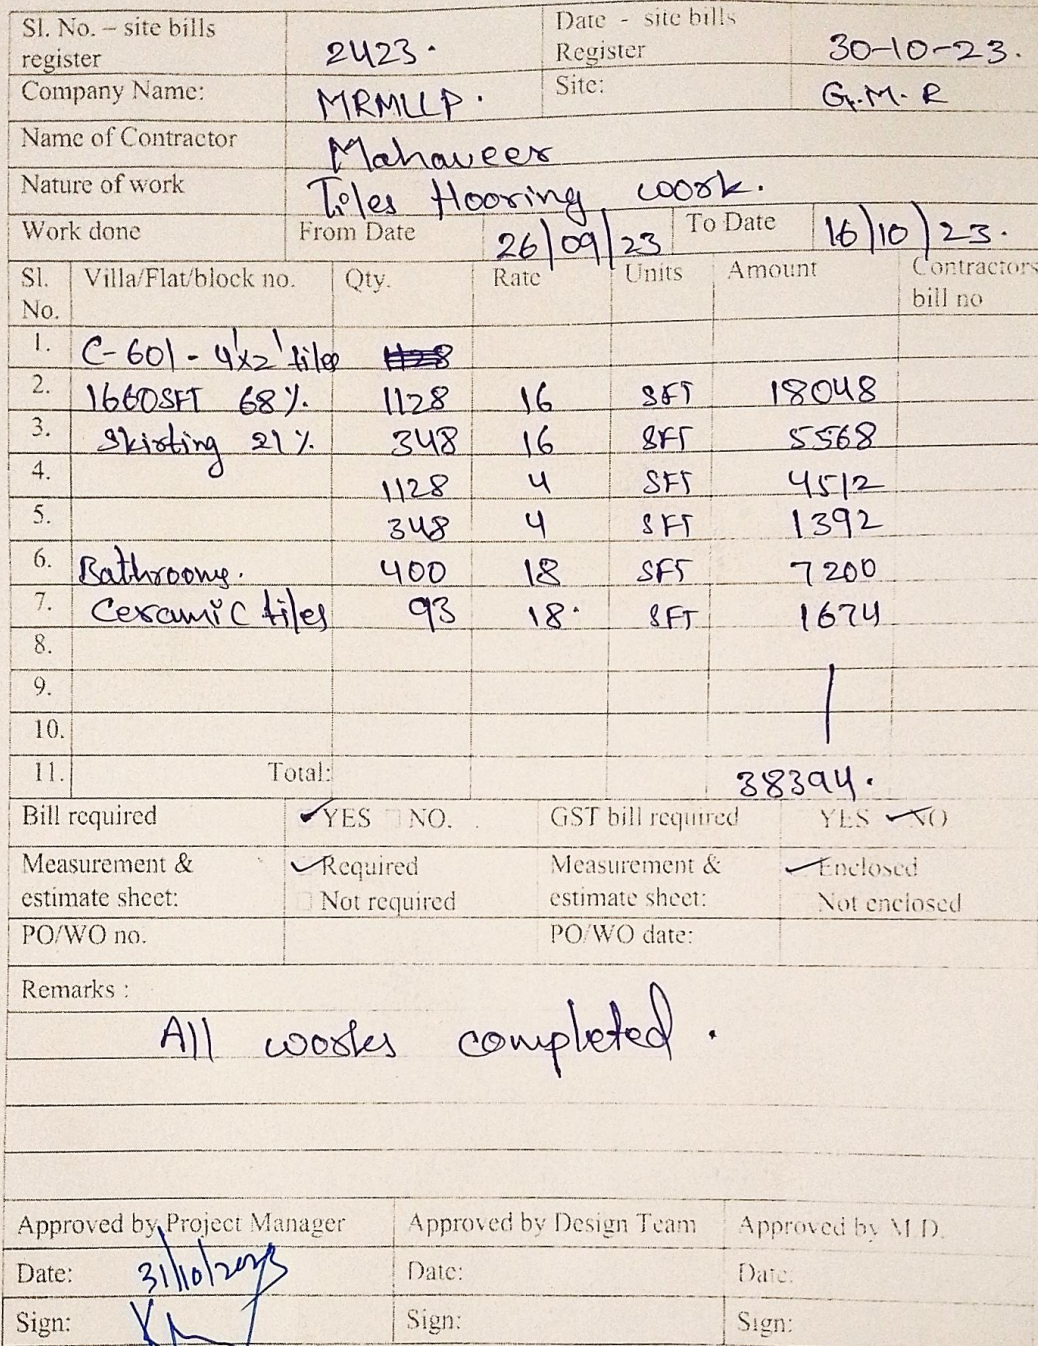 Sl. No. – site bills register 2423. Date - site bills Register 30-10-23.
Company Name: MRMLLP. Site: G.M.R
Name of Contractor Mahaveer
Nature of work Tiles flooring work.
Work done From Date 26/09/23 To Date 16/10/23.
Sl. No. Villa/Flat/block no. Qty. Rate Units Amount Contractors bill no
1. C-601 - 4'x2' tiles
2. 1660SFT 68%. 1128 16 SFT 18048
3. Skirting 21%. 348 16 SFT 5568
4. 1128 4 SFT 4512
5. 348 4 SFT 1392
6. Bathrooms. 400 18 SFT 7200
7. Ceramic tiles 93 18. SFT 1674
8.
9.
10.
11. Total: 38394.
Bill required YES NO. GST bill required YES NO
Measurement & estimate sheet: Required Not required Measurement & estimate sheet: Enclosed Not enclosed
PO/WO no. PO/WO date:
Remarks :
All works completed.
Approved by Project Manager Approved by Design Team Approved by M.D.
Date: 31/10/2023 Date: Date:
Sign: Sign: Sign: